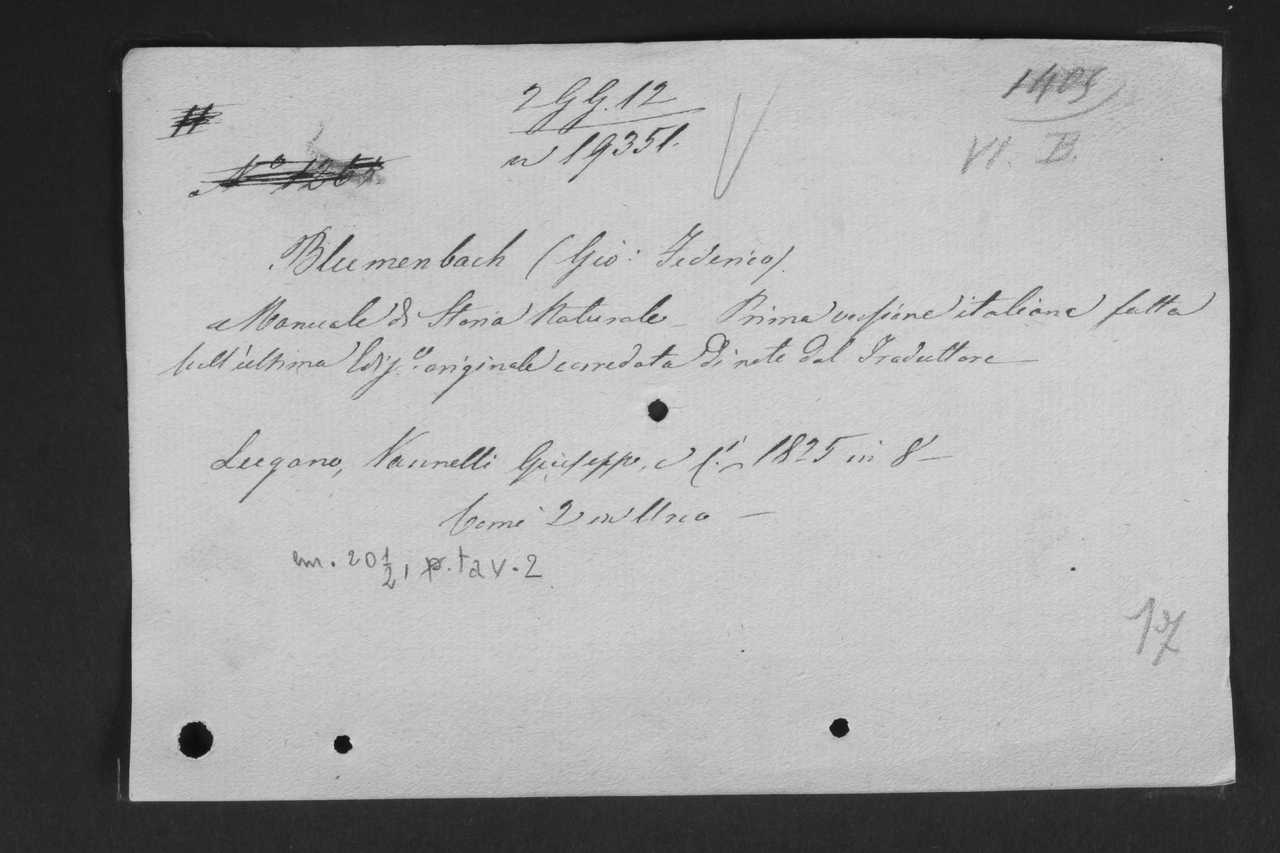 2 GG. 12
n 19351.
VI. B.
Blumenbach (Gio: Federico)
Manuale di Storia Naturale – Prima versione italiana fatta
sull'ultima Ediz.e originale corredata di note dal Traduttore –
Lugano, Vannelli Giuseppe, e C.i 1825 in 8º –
Tomi 2 in Uno –
cm. 20 1/2, p. tav. 2
17